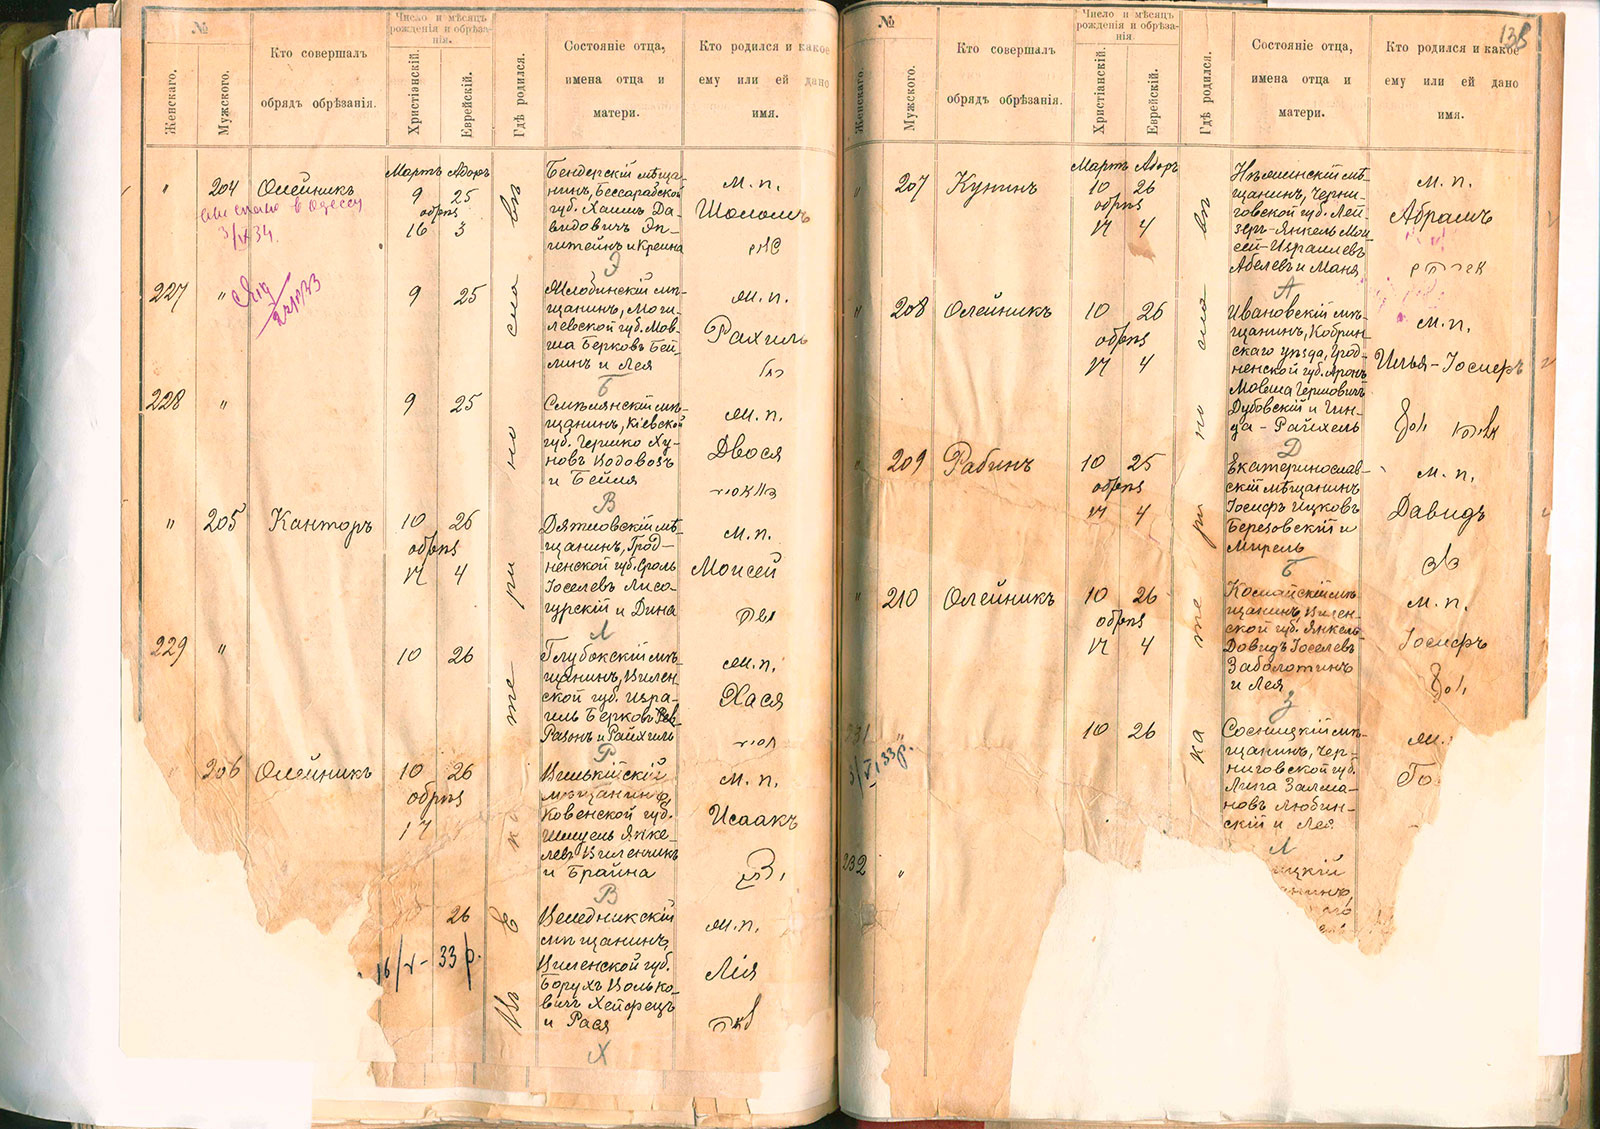 №
Женскаго.
Мужского.
Кто совершалъ
обрядъ обрѣзанія.
Число и мѣсяцъ
рожденія и обрѣза-
нія.
Христіанскій.
Еврейскій.
Гдѣ родился.
Состояніе отца,
имена отца и
матери.
Кто родился и какое
ему или ей дано
имя.
Мартъ Адоръ
" 204 Олейникъ 9 25
обрѣз
16 3
3/IX 34.
Бендерскій мѣща-
нинъ, Бессарабской
губ. Хаимъ Да-
видовичъ Эп-
штейнъ и Крейна
Э
м. п.
Шоломъ
227 " 9 25
Жлобинскій мѣ-
щанинъ, Моги-
левской губ. Мов-
ша Берковъ Бей-
линъ и Лея
Б
м. п.
Рахиль
רחל
228 " 9 25
Смѣлянскій мѣ-
щанинъ, Кіевской
губ. Гершко Ху-
новъ Водовозъ
и Бейля
В
м. п.
Двося
" 205 Канторъ 10 26
обрѣз
17 4
Дятловскій мѣ-
щанинъ, Грод-
ненской губ. Сроль
Іоселевъ Лисо-
гурскій и Дина
Л
м. п.
Моисей
משה
229 " 10 26
Глубокскій мѣ-
щанинъ, Вилен-
ской губ. Изра-
иль Берковъ
Разонъ и Райхиль
Р
м. п.
Хася
206 Олейникъ 10 26
обрѣз
17
Вилькійскій
мѣщанинъ,
Ковенской губ.
Шмуель Янке-
левъ Виленчикъ
и Брайна
В
м. п.
Исаакъ
26
16/V - 33 р.
Веледникскій
мѣщанинъ,
Виленской губ.
Борухъ Волько-
вичъ Хейфецъ
и Рася
Х
м. п.
Лія
Въ Екатеринославѣ
№
138
Женскаго.
Мужского.
Кто совершалъ
обрядъ обрѣзанія.
Число и мѣсяцъ
рожденія и обрѣза-
нія
Христіанскій.
Еврейскій.
Гдѣ родился.
Состояніе отца,
имена отца и
матери.
Кто родился и какое
ему или ей дано
имя.
Мартъ Адоръ
" 207 Кунинъ 10 26
обрѣз
17 4
щанинъ, Черни-
говской губ. Лей-
зеръ-Янкель Мой
сей-Израилевъ
Абелевъ и Маня
А
м. п.
Абрамъ
" 208 Олейникъ 10 26
обрѣз
17 4
Ивановскій мѣ-
щанинъ, Кобрин-
скаго уѣзда, Грод-
ненской губ. Аронъ
Мовша Гершовичъ
Дубовскій и Гин-
да-Райхель
Д
м. п.
Илья-Іосифъ
209 Рабинъ 10 25
обрѣз
17 4
Екатеринослав-
скій мѣщанинъ
Іосифъ Ицковъ
Березовскій и
Мирель
Б
м. п.
Давидъ
דוד
" 210 Олейникъ 10 26
обрѣз
17 4
Комайскій мѣ-
щанинъ, Вилен-
ской губ. Янкель-
Довидъ Іоселевъ
Заболотинъ
и Лея
З
м. п.
Іосифъ
יוסף
231 " 10 26
3/VI 33 р.
Сосницкій мѣ-
щанинъ, Чер-
ниговской губ.
Лейба Залма-
новъ Любин-
скій и Лея
Л
м.
Го
232 "
ицкій
анинъ,
Екатеринославѣ